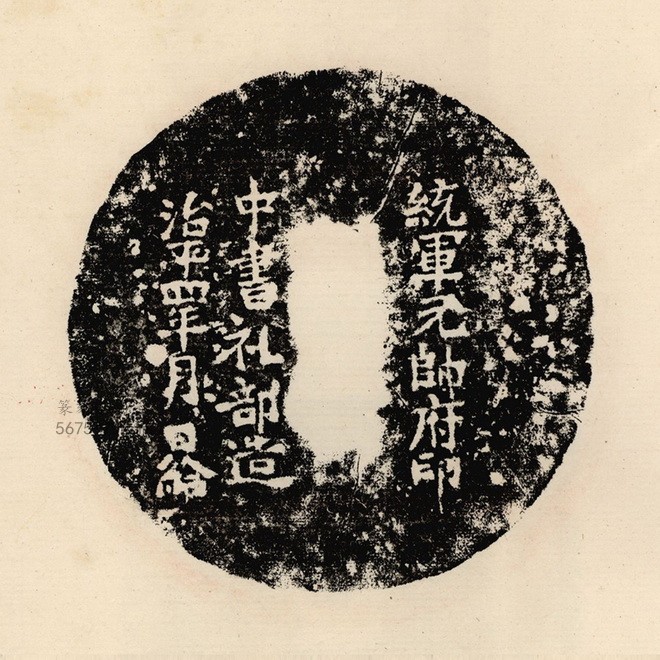 統軍元帥府印
中書礼部造
治平四年月日
篆
5675